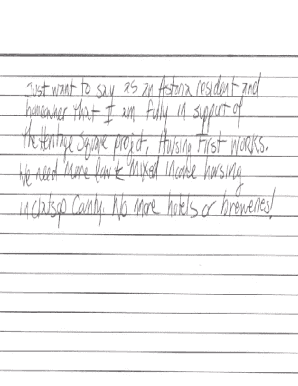 Just want to say as an Astoria resident and
homeowner that I am fully in support of
the Heritage Square project, Housing First WORKS.
We need more low & mixed income housing
in Clatsop County. No more hotels or breweries!